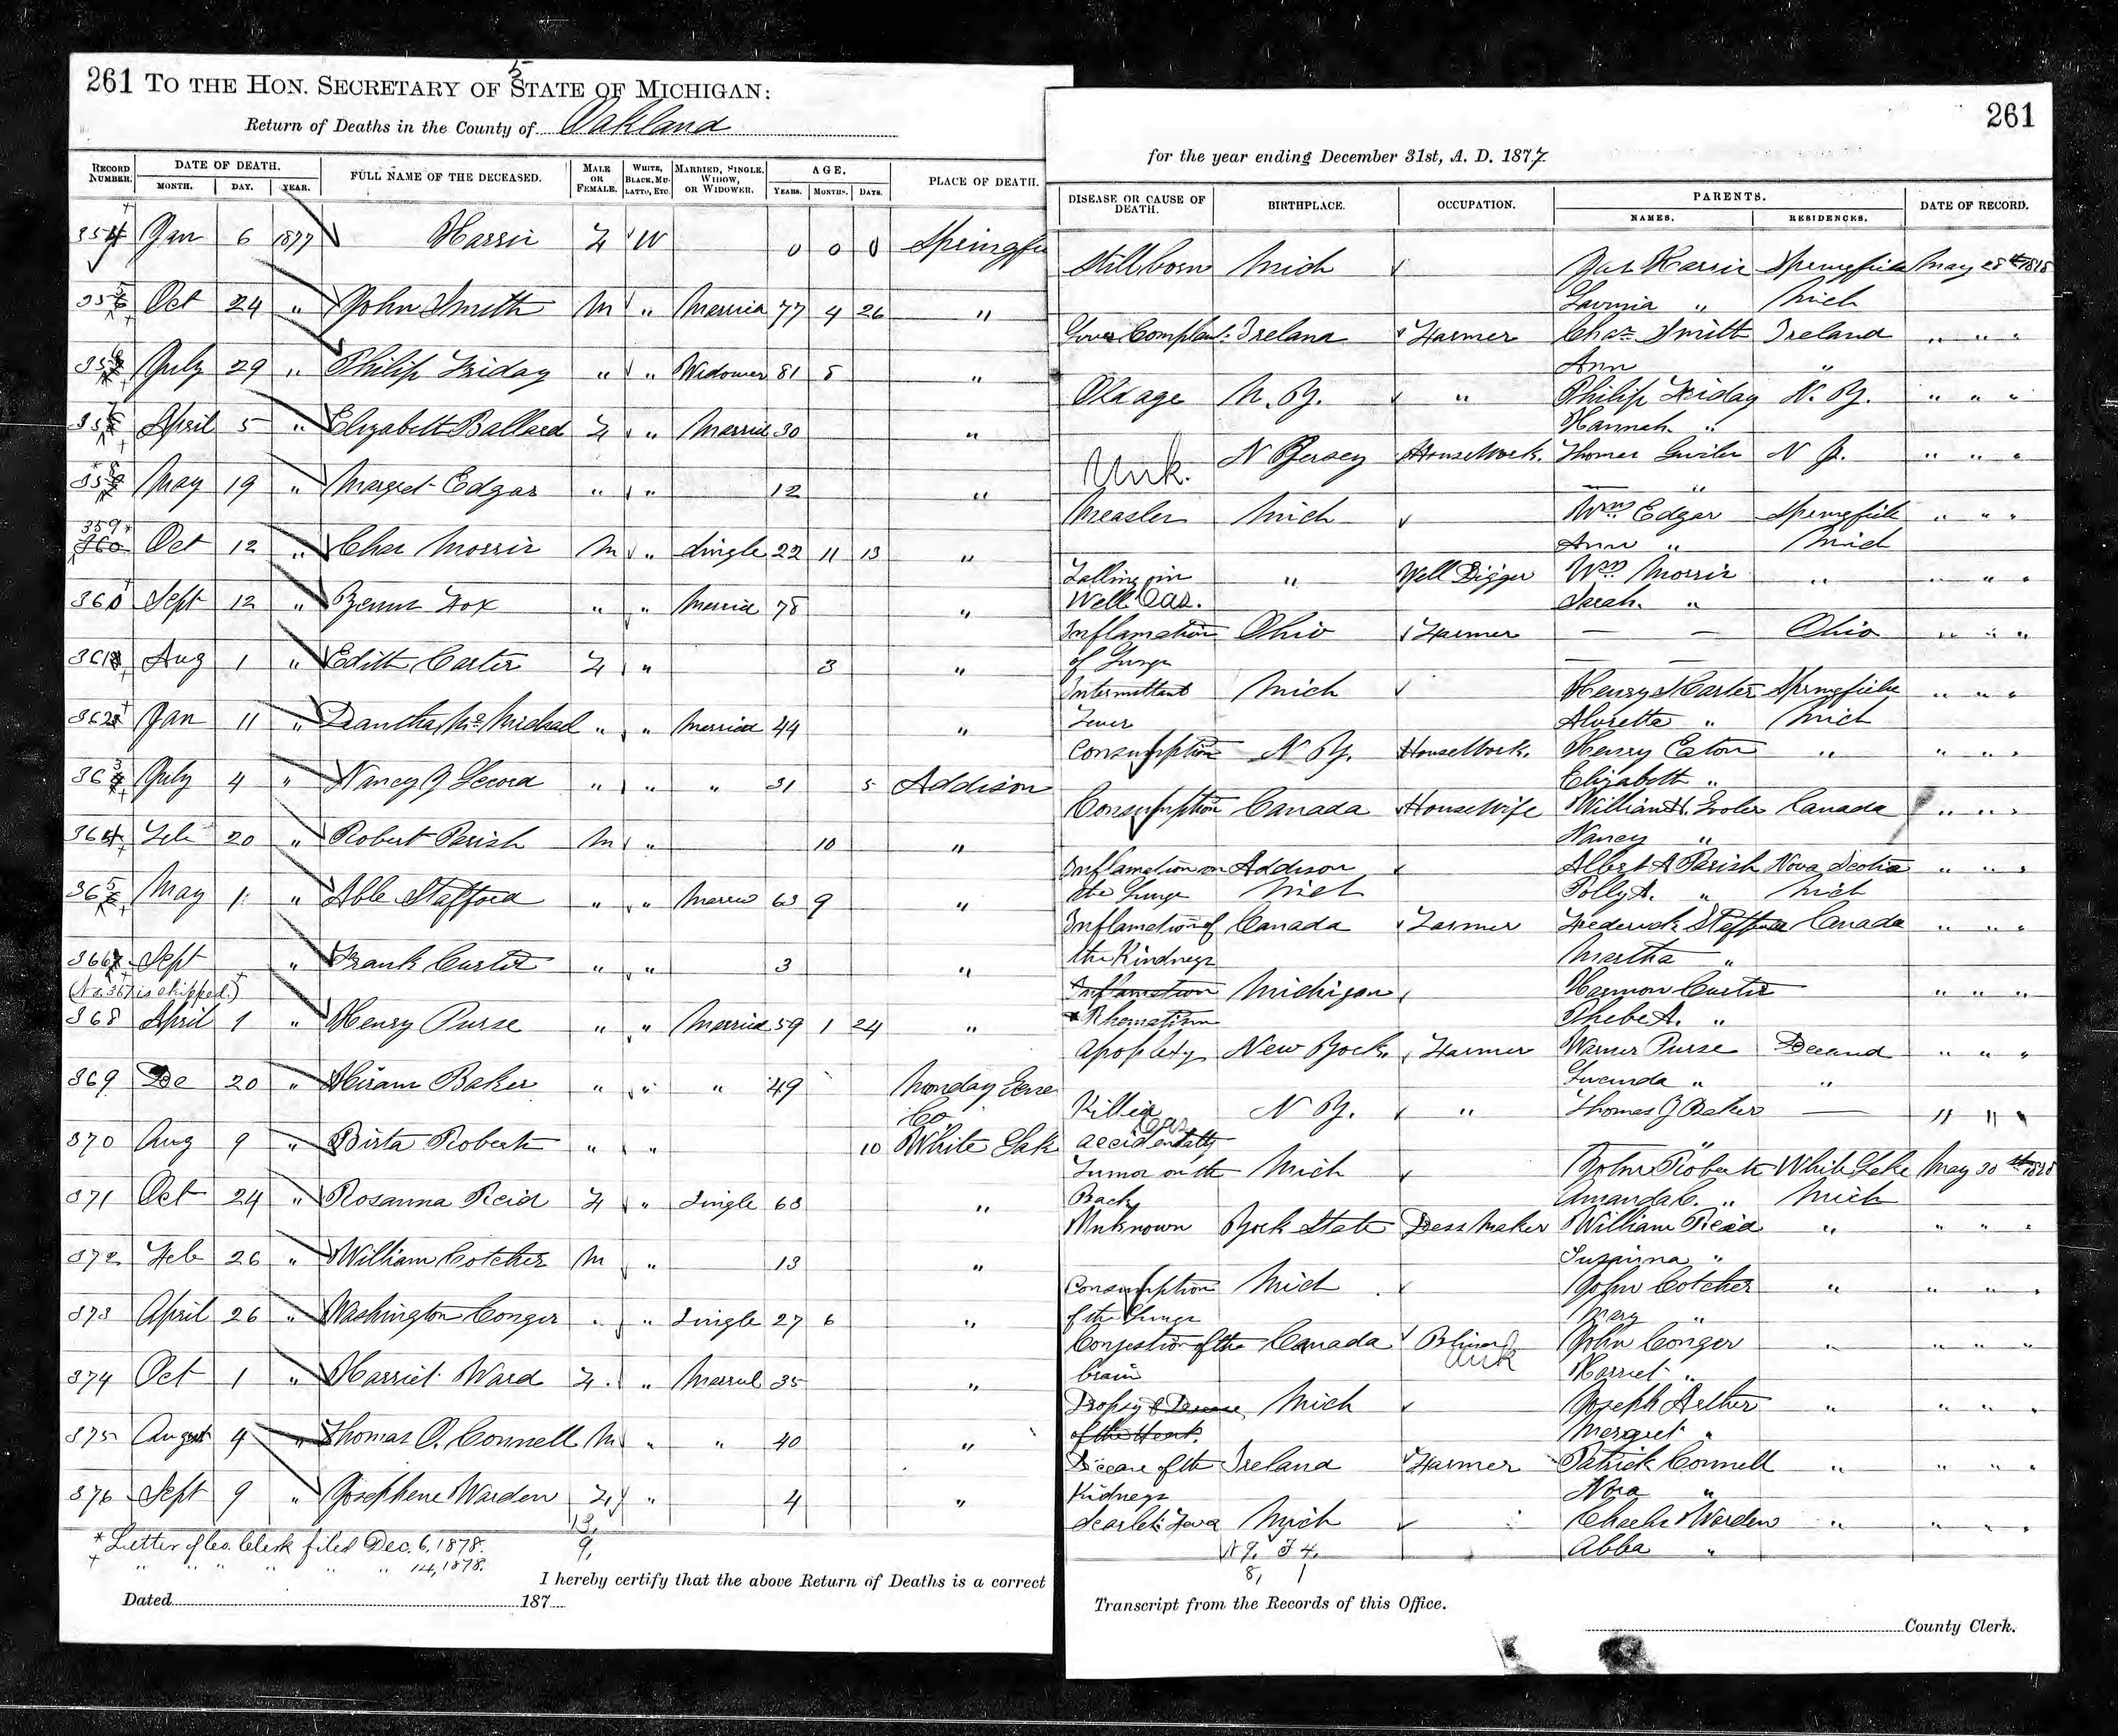 261 TO THE HON. SECRETARY OF STATE OF MICHIGAN:
5
Return of Deaths in the County of Oakland
RECORD NUMBER. DATE OF DEATH. MONTH. DAY. YEAR. FULL NAME OF THE DECEASED. MALE OR FEMALE. WHITE, BLACK, MULATTO, ETC. MARRIED, SINGLE, WIDOW, OR WIDOWER. AGE. YEARS. MONTHS. DAYS. PLACE OF DEATH.
354 Jan 6 1877 Harris F W 0 0 0 Springfie
355 Oct 24 " John Smith M " Married 77 4 26 "
356 July 29 " Philip Friday " " Widower 81 8 "
357 April 5 " Elizabeth Ballard F " Married 30 "
358 May 19 " Margret Edgar " " 12 "
359
360 Oct 12 " Chas Morris M " Single 22 11 13 "
360 Sept 12 " Fox " " Married 78 "
361 Aug 1 " Edith Carter F " 3 "
362 Jan 11 " Diantha Mc Michael " " Married 44 "
363 July 4 " Nancy J Secord " " " 31 5 Addison
364 Feb 20 " Robert Parish M " 10 "
365 May 1 " Able Stafford " " Married 63 9 "
366 Sept " Frank Curtis " " 3 "
(No. 367 is skipped.)
368 April 1 " Henry Purse " " Married 59 1 24 "
369 De 20 " Hiram Baker " " " 49 Monday Gene
Co
370 Aug 9 " Birta Roberts " " 10 White Lak
371 Oct 24 " Rosanna Reid F " Single 63 "
372 Feb 26 " William Cotcher M " 13 "
373 April 26 " Washington Conger " " Single 27 6 "
374 Oct 1 " Harriet Ward F " Married 35 "
375 August 4 " Thomas O. Connell M " " 40 "
376 Sept 9 " Josephene Warden F " 4 "
13,
9,
* Letter of Co. Clerk filed Dec. 6, 1878.
+ " " " " " " 14, 1878.
I hereby certify that the above Return of Deaths is a correct
Dated 187
261
for the year ending December 31st, A. D. 1877.
DISEASE OR CAUSE OF DEATH. BIRTHPLACE. OCCUPATION. PARENTS. NAMES. RESIDENCES. DATE OF RECORD.
Still born Mich Jas Harris Springfield May 28th 1878
Lavinia " Mich
Liver Complant Ireland Farmer Chas Smith Ireland " " "
Ann "
Old age N. Y. " Philip Friday N. Y. " " "
Hannah "
Unk. N Jersey House Work. Thomas N J. " " "
"
Measles Mich Wm Edgar Springfield " " "
Ann " Mich
Falling in " Well Digger Wm Morris " " " "
Well. Cas. Sarah "
Inflamation Ohio Farmer — — Ohio " " "
of Lungs — —
Intermittent Mich Henry Carter Springfield " " "
Fever Alvretta " Mich
Consumption N Y. House Work. Henry Eaton " " " "
Elizabeth "
Consumption Canada House Wife William H. Canada " " "
Nancy "
Inflamation on Addison Albert A Parish Nova Scotia " " "
the Lungs Mich Polly A. " Mich
Inflamation of Canada Farmer Frederick Stafford Canada " " "
the Kindneys Martha "
Inflamation Michigan Harmon Curtis " " "
* Rhomatism Phebe A. "
Apoplexy New York Farmer Warner Purse Decead " " "
Lucinda " "
Killed N Y. " Thomas J Baker — " " "
Cas
accidentally "
Tumor on the Mich John Roberts White Lake May 30th 1878
Back Amanda C. " Mich
Unknown York State Dress Maker William Reid " " " "
Suzainna "
Consumption Mich John Cotcher " " " "
of the Lungs Mary "
Congestion of the Canada Blind John Conger " " " "
Unk
brain Harriet "
Dropsy & Disease Mich Joseph Arther " " " "
of the Heart. Margret "
Disease of the Ireland Farmer Patrick Connell " " " "
Kidneys Nora "
Scarlet Fever Mich Charles Warden " " " "
Abba "
N 9. F 4.
8, 1
Transcript from the Records of this Office.
County Clerk.